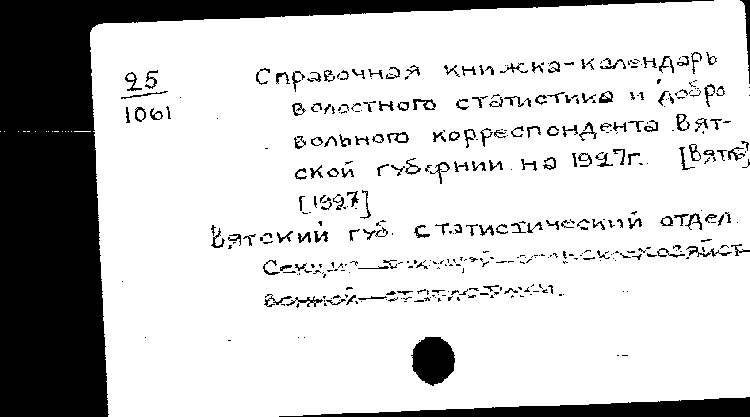 25
1061
Справочная книжка-календарь
волостного статистика и добро
вольного корреспондента Вят-
ской губернии на 1927г. [Вятка]
[1927]
Вятский губ. статистический отдел.
Секция текущей сельскохозяйст
венной статистики.